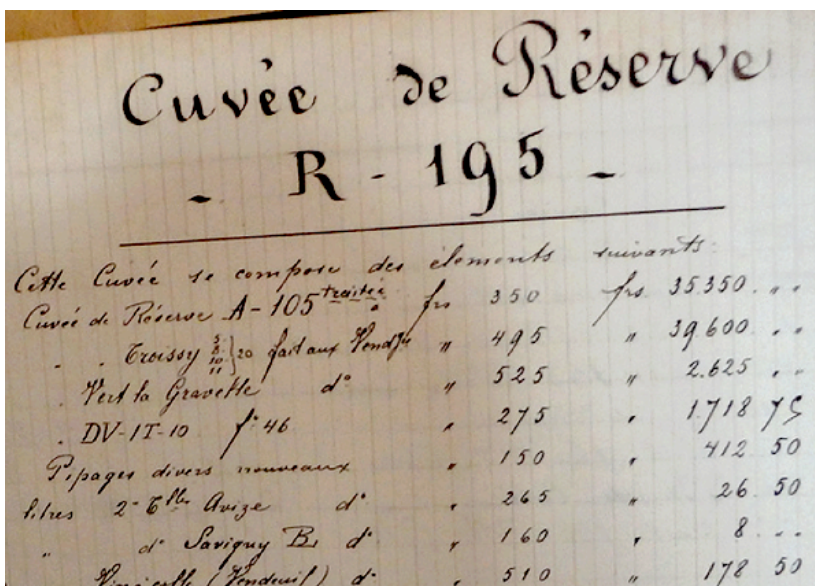 Cuvée de Réserve
- R - 195 -
Cette Cuvée se compose des élements suivants:
Cuvée de Réserve A-105 traitée frs 350 frs 35.350 . .
. . Troissy 20 fait aux Vend " 495 " 39.600 . .
. Vert la Gravelle d° " 525 " 2.625 . .
. DV-1T-10 f° 46 " 275 " 1.718 75
Pipages divers nouveaux " 150 " 412 50
litres 2e Avize d° " 265 " 26 50
" d° Savigny B. d° " 160 " 8 . .
(Vendeuil) d° " 510 " 178 50